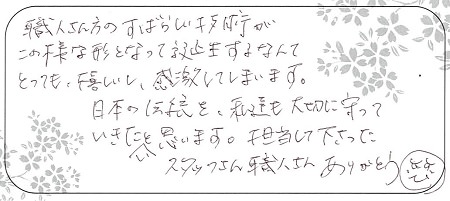 職人さん方のすばらしい技術が
この様な形となって誕生するなんて
とっても、嬉しいし、感激してしまいます。
日本の伝統を、私達も大切に守って
いきたいと思います。担当して下さった
スタッフさん職人さん ありがとう